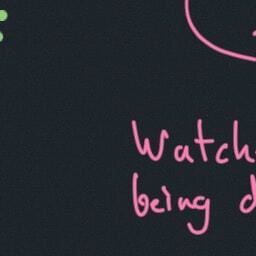 Watch
being d